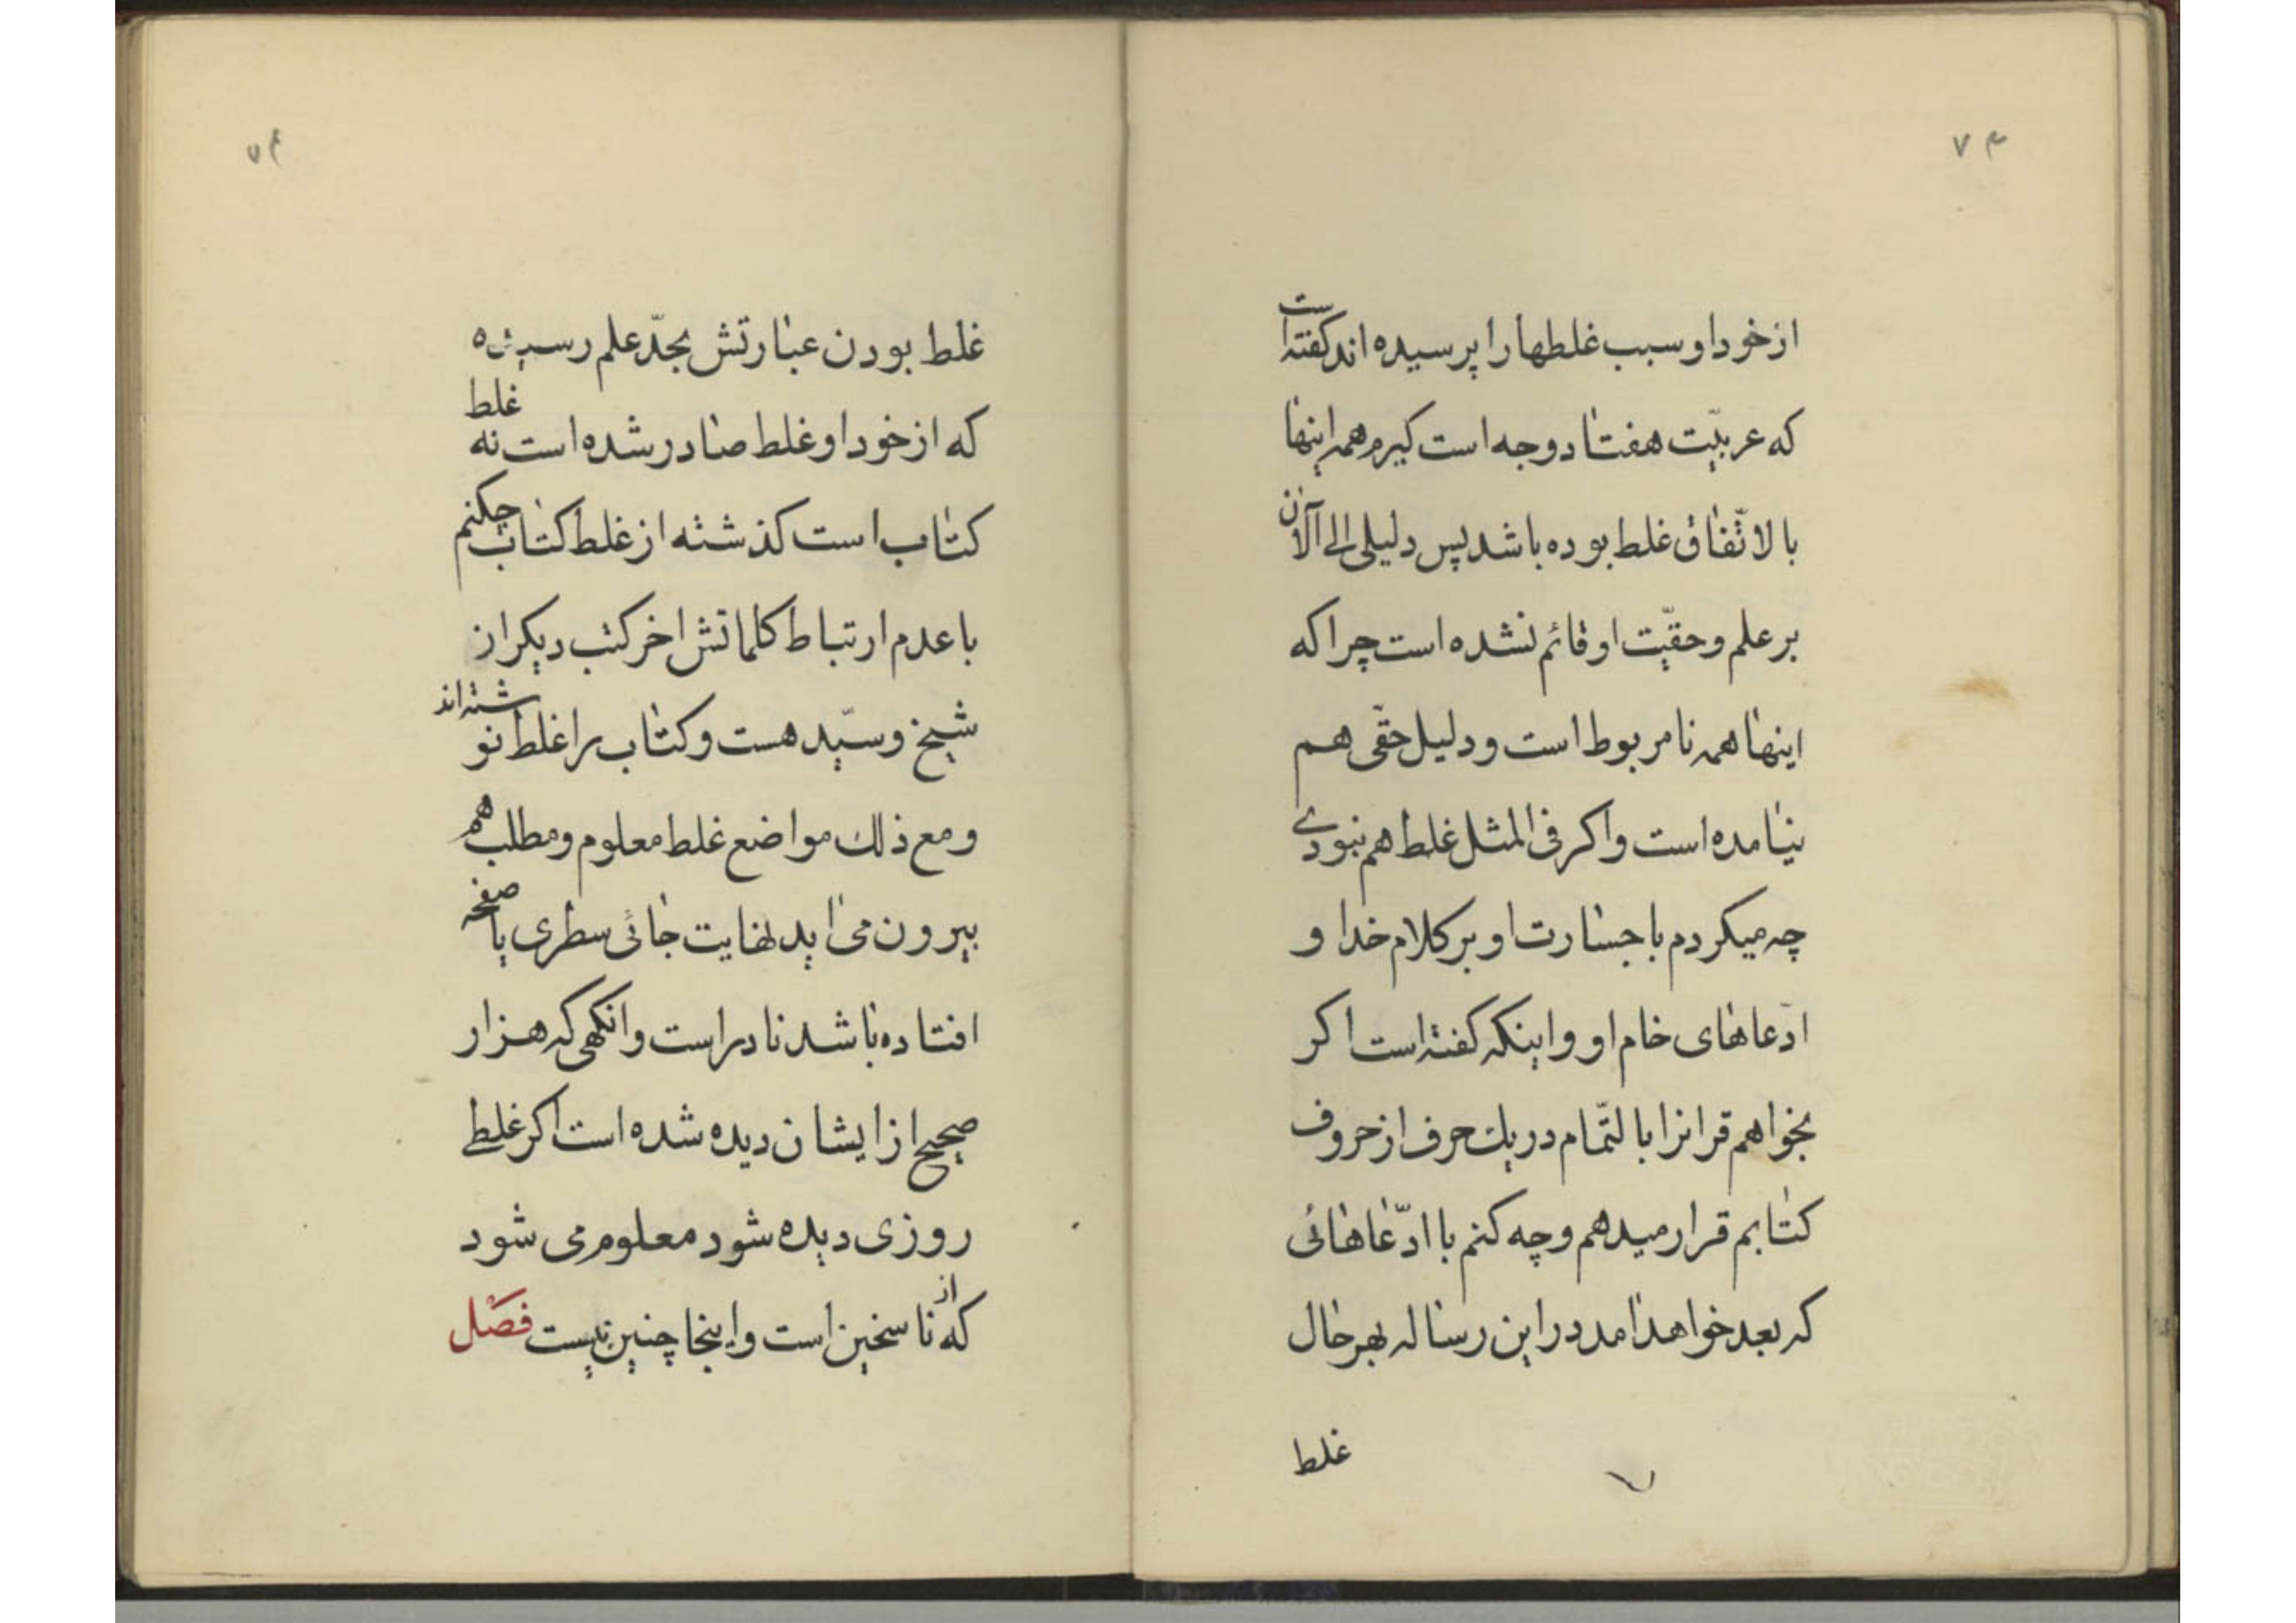 ۷۳
از خود او سبب غلطها را پرسیده اند کفته است
که عربیّت هفتاد وجه است کیرم همه اینها
بالاتّفاق غلط بوده باشد پس دلیلی الی الآن
بر علم و حقیّت او قائم نشده است چرا که
اینها همه نامربوط است و دلیل حقّی هم
نیامده است و اکر فی المثل غلط هم نبودی
چه میکردم با جسارت او بر کلام خدا و
ادّعاهای خام او و اینکه کفته است اکر
بخواهم قرانرا بالتّمام در یك حرف از حروف
کتابم قرار میدهم و چه کنم با ادّعاهائی
که بعد خواهد امد در این رساله بهر حال
غلط
۷۴
غلط بودن عبارتش بحدّ علم رسیده
که از خود او غلط صادر شده است نه غلط
کتاب است کذشته از غلط کتاب چکنم
با عدم ارتباط کلماتش اخر کتب دیکر از
شیخ و سیّد هست و کتاب را غلط نوشته اند
و مع ذلك مواضع غلط معلوم و مطلب هم
بیرون می اید نهایت جائی سطری یا صفحه
افتاده باشد نادر است وانکهی که هزار
صحیح از ایشان دیده شده است اکر غلطی
روزی دیده شود معلوم می شود
که از ناسخین است و اینجا چنین نیست فصل